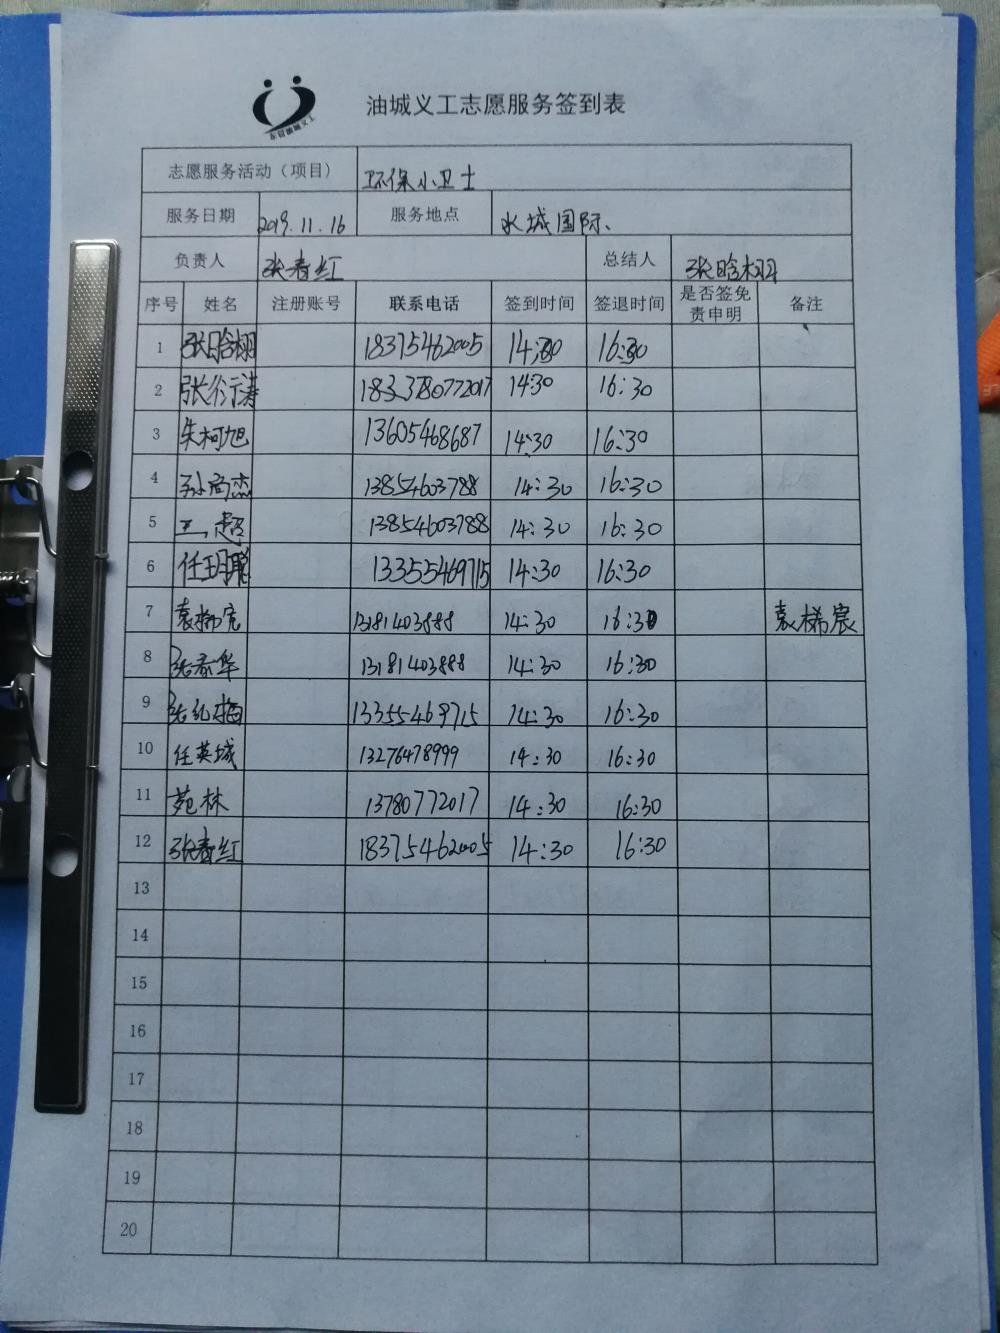 东营油城义工
油城义工志愿服务签到表
志愿服务活动（项目） 环保小卫士
服务日期 2019.11.16 服务地点 水城国际、
负责人 张春红 总结人 张晗栩
序号 姓名 注册账号 联系电话 签到时间 签退时间 是否签免责申明 备注
1 张晗栩 18375462005 14:30 16:30
2 张衍涛 14:30 16:30
3 朱柯旭 13605468687 14:30 16:30
4 孙尚杰 13854603788 14:30 16:30
5 王超 13854603788 14:30 16:30
6 任玥聪 13355469715 14:30 16:30
7 袁梯宸 13181403888 14:30 16:30 袁梯宸
8 张春华 13181403888 14:30 16:30
9 张红梅 13355469715 14:30 16:30
10 任英城 13276478999 14:30 16:30
11 苑林 13780772017 14:30 16:30
12 张春红 18375462005 14:30 16:30
13
14
15
16
17
18
19
20